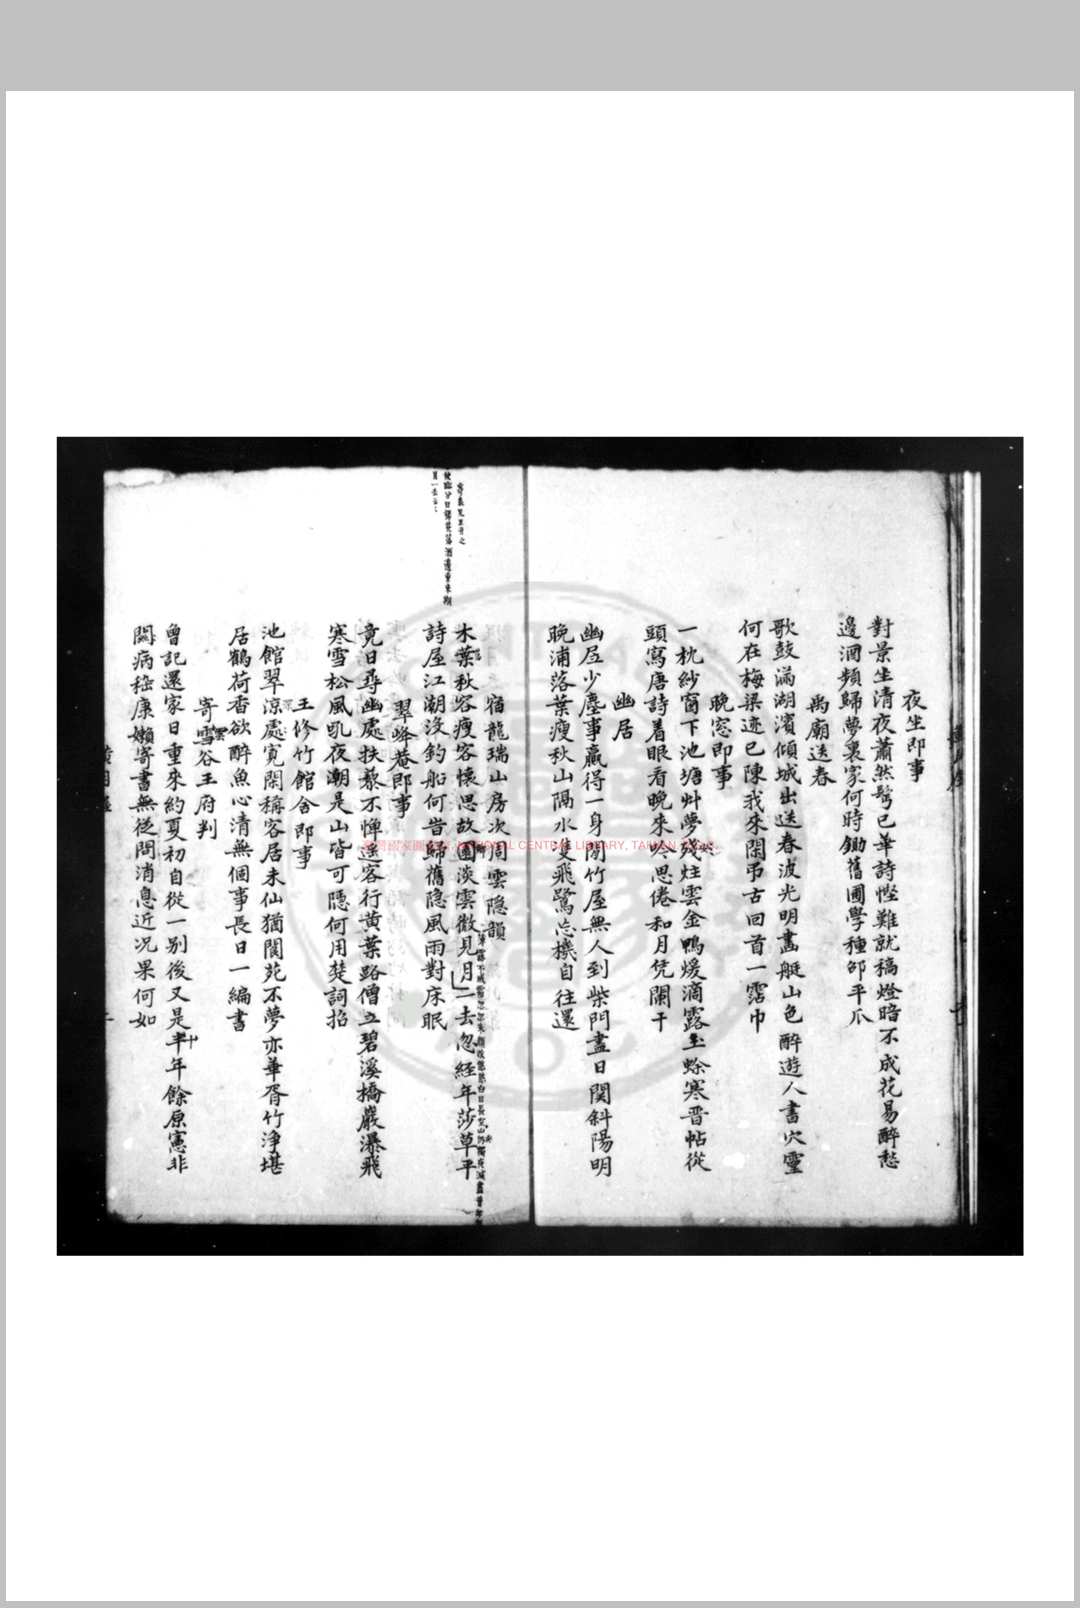 夜坐即事
對景坐清夜蕭然鬂已華詩慳難就稿燈暗不成花易醉愁
邊酒頻歸夢裏家何時鋤舊圃學種邵平瓜
禹廟送春
歌鼓滿湖濱傾城出送春波光明畵艇山色醉遊人書穴靈
何在梅梁迹已陳我來閑弔古回首一霑巾
晚窓即事
一枕紗窗下池塘艸夢殘炷雲金鴨煖滴露玉蜍寒晋帖從
頭寫唐詩着眼看晚來吟思倦和月凭闌干
幽居
幽居少塵事贏得一身閒竹屋無人到柴門盡日関斜陽明
晚浦落葉瘦秋山隔水雙飛鷺忘機自往還
宿龍瑞山房次周雲隐韻
木葉秋容瘦客懷思故園淡雲微見月
二去忽經年莎草平
詩屋江潮沒釣船何當歸舊隐風雨對床眠
翠峰菴即事
竟日尋幽處扶藜不憚遥客行黄葉路僧立碧溪橋巖瀑飛
寒雪松風吼夜潮是山皆可隱何用楚詞招
王修竹館舍即事
池館翠涼處寛閑稱客居未仙猶閬苑不夢亦華胥竹浄堪
居鶴荷香欲醉魚心清無個事長日一編書
寄雪谷王府判
曾記還家日重來約夏初自從一别後又是半年餘原憲非
関病嵇康嬾寄書無從問消息近况果何如
NATIONAL CENTRAL LIBRARY, TAIWAN